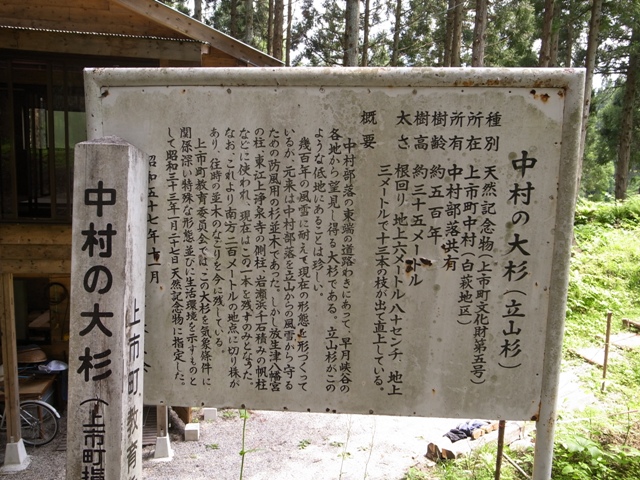 中村の大杉（立山杉）
種別　天然記念物（上市町文化財第五号）
所在　上市町中村（白萩地区）
所有　中村部落共有
樹齢　約五百年
樹高　約三十五メートル
太さ　根回り、地上六メートル八十センチ、地上
三メートルで十三本の枝が出て直上している。
概要
中村部落の東端の道路わきにあって、早月峡谷の
各地から望見し得る大杉である。立山杉がこの
ような低地にあることは珍しい。
幾百年の風雪に耐えて現在の形態を形づくって
いるか、元来は中村部落を立山からの風雪から守る
ための防風用の杉並木であった。しかし放生津八幡宮
の柱、東江上浄泉寺の側柱、岩瀬浜千石積みの帆柱
などに使われ、現在はこの一本を残すのみとなった。
なお、これより南方二百メートルの地点に切り株が
あり、往時の並木のなごりを今に残している。
上市町教育委員会では、この大杉を気象條件に
関係深い特殊な形態並びに生活環境を示すものと
して昭和三十三年一月二十七日天然記念物に指定した。
昭和五十七年十一月
中村の大杉（上市町
上市町教育